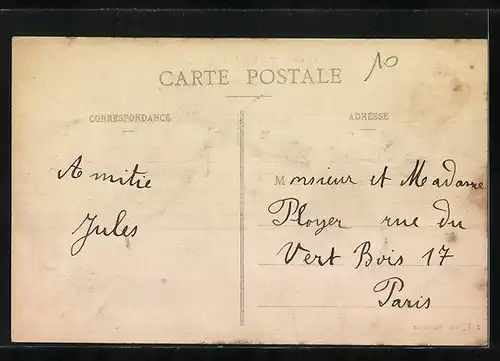 10
CARTE POSTALE
CORRESPONDANCE
ADRESSE
Amitie
Jules
Monsieur et Madame
Ployer rue du
Vert Bois 17
Paris